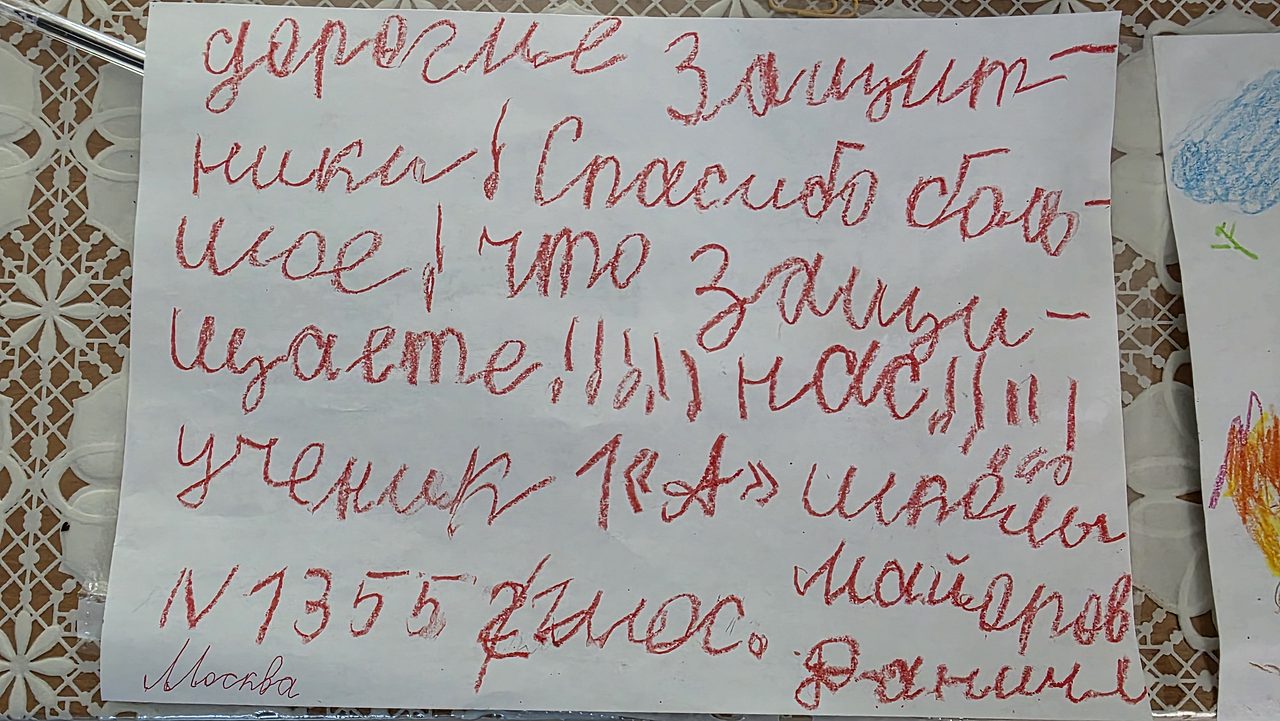 дорогие Защит-
ники! Спасибо боль-
шое! что защи-
щаете!!!!! нас!!!!!
ученик 1«А» школы
N 1355 г. Москва
Майоров
Даниил
Москва